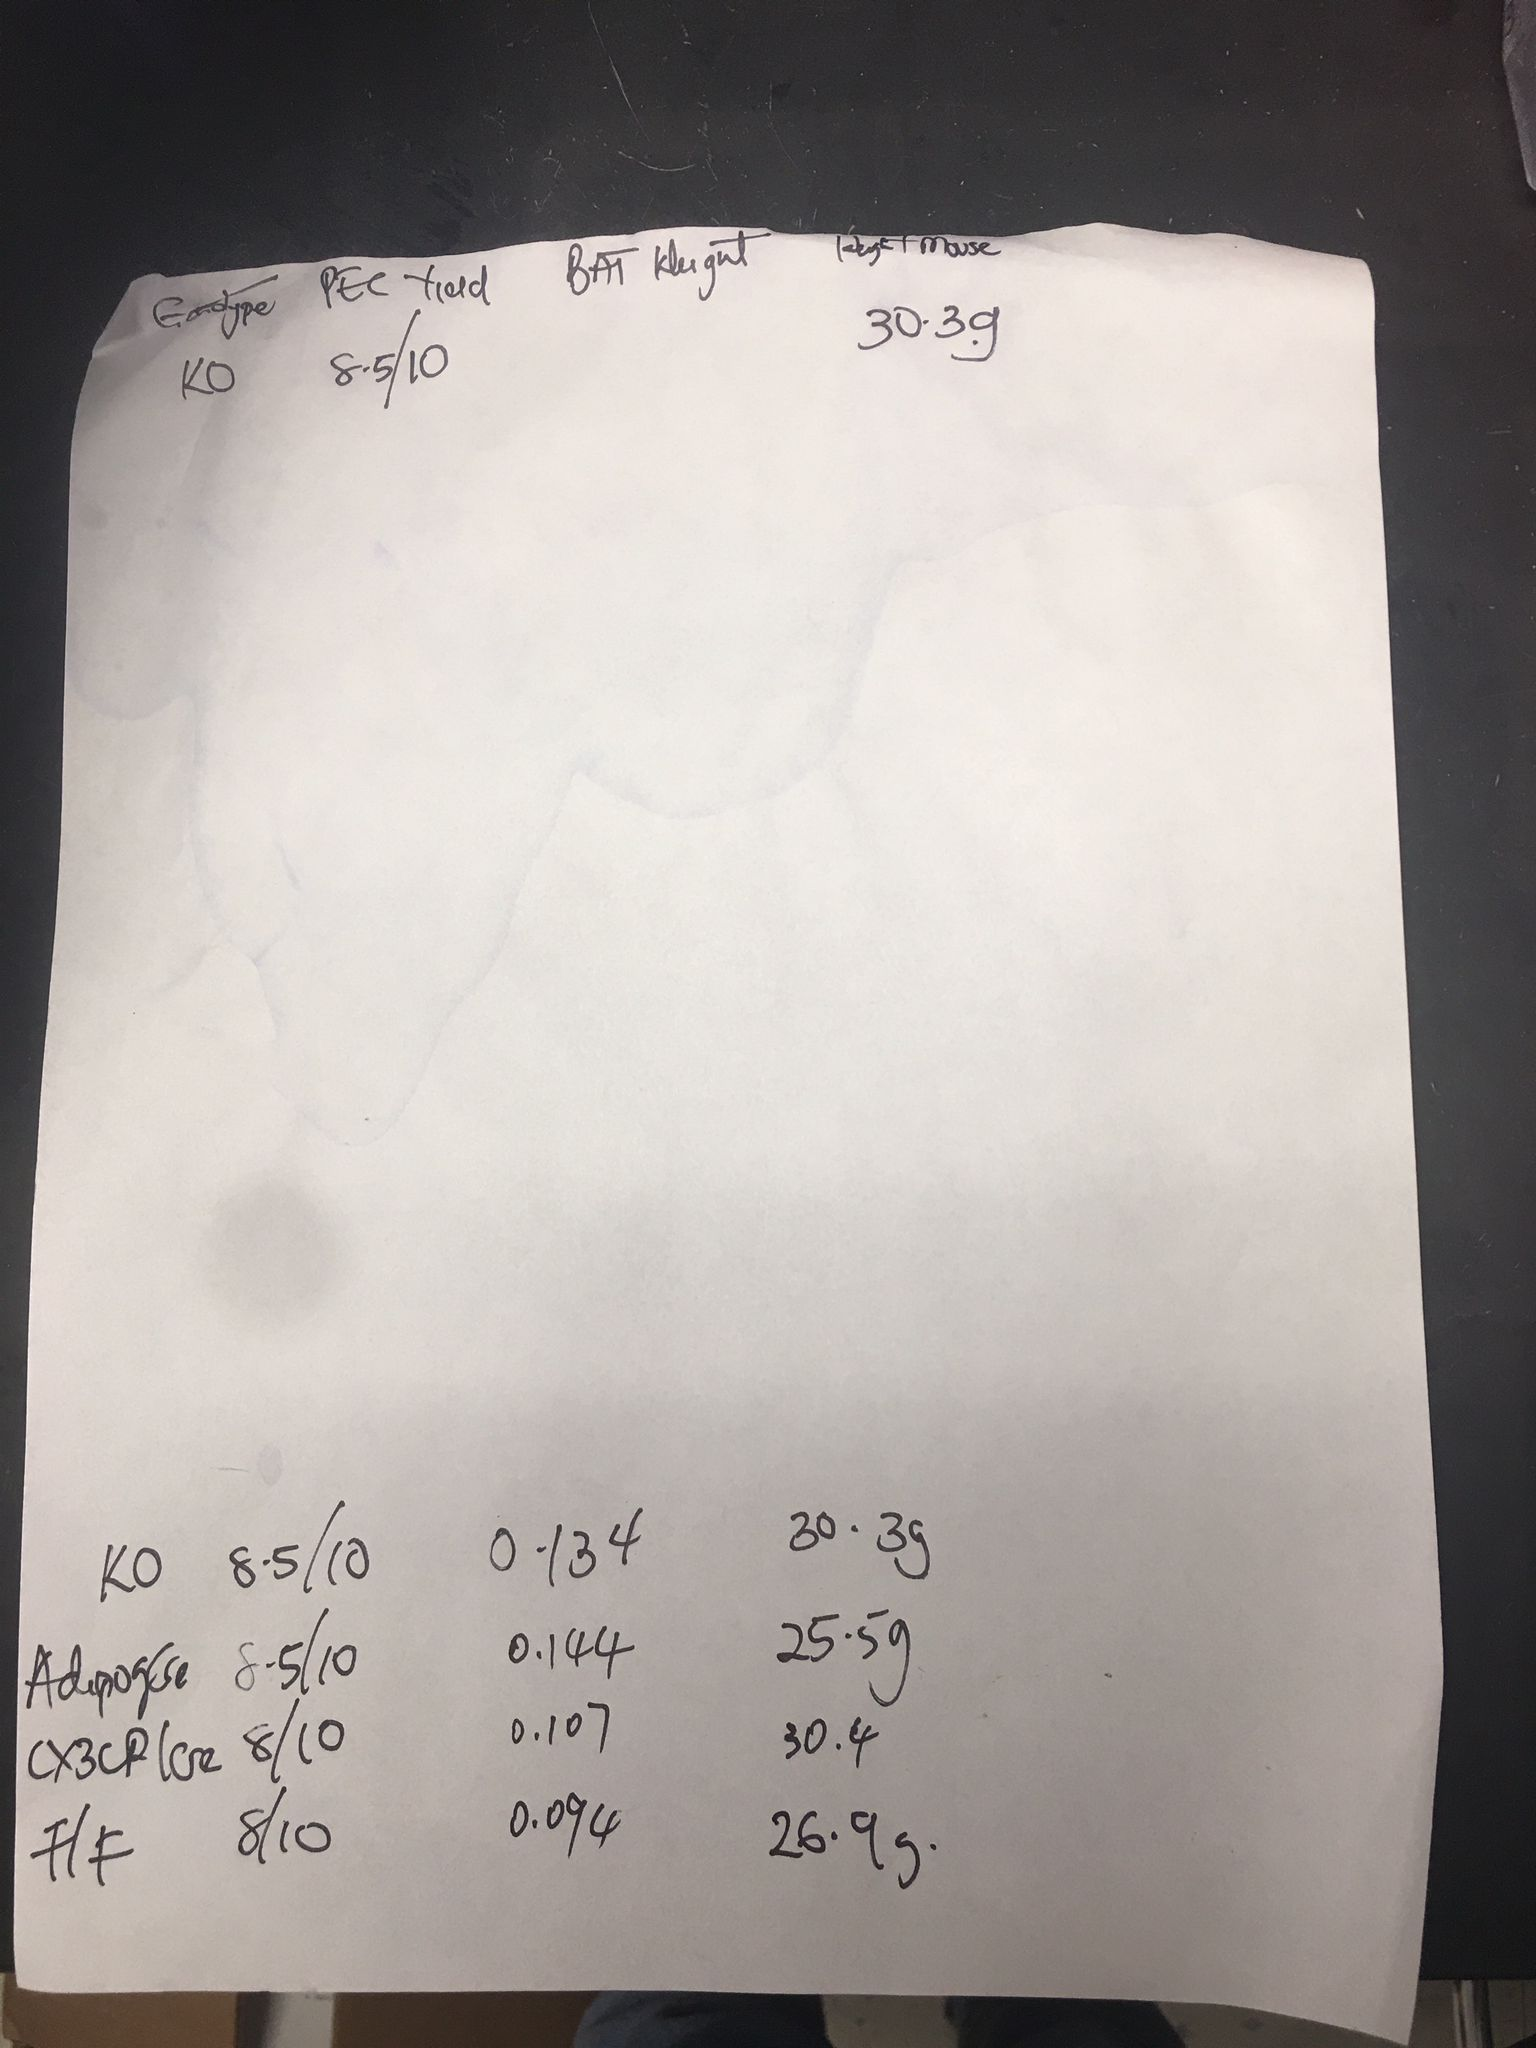 Genotype PEC Yield BAT Weight Weight Mouse
KO 8.5/10 30.3g
KO 8.5/10 0.134 30.3g
AdipoqCre 8.5/10 0.144 25.5g
CX3CR1Cre 8/10 0.107 30.4
F/F 8/10 0.094 26.9g.